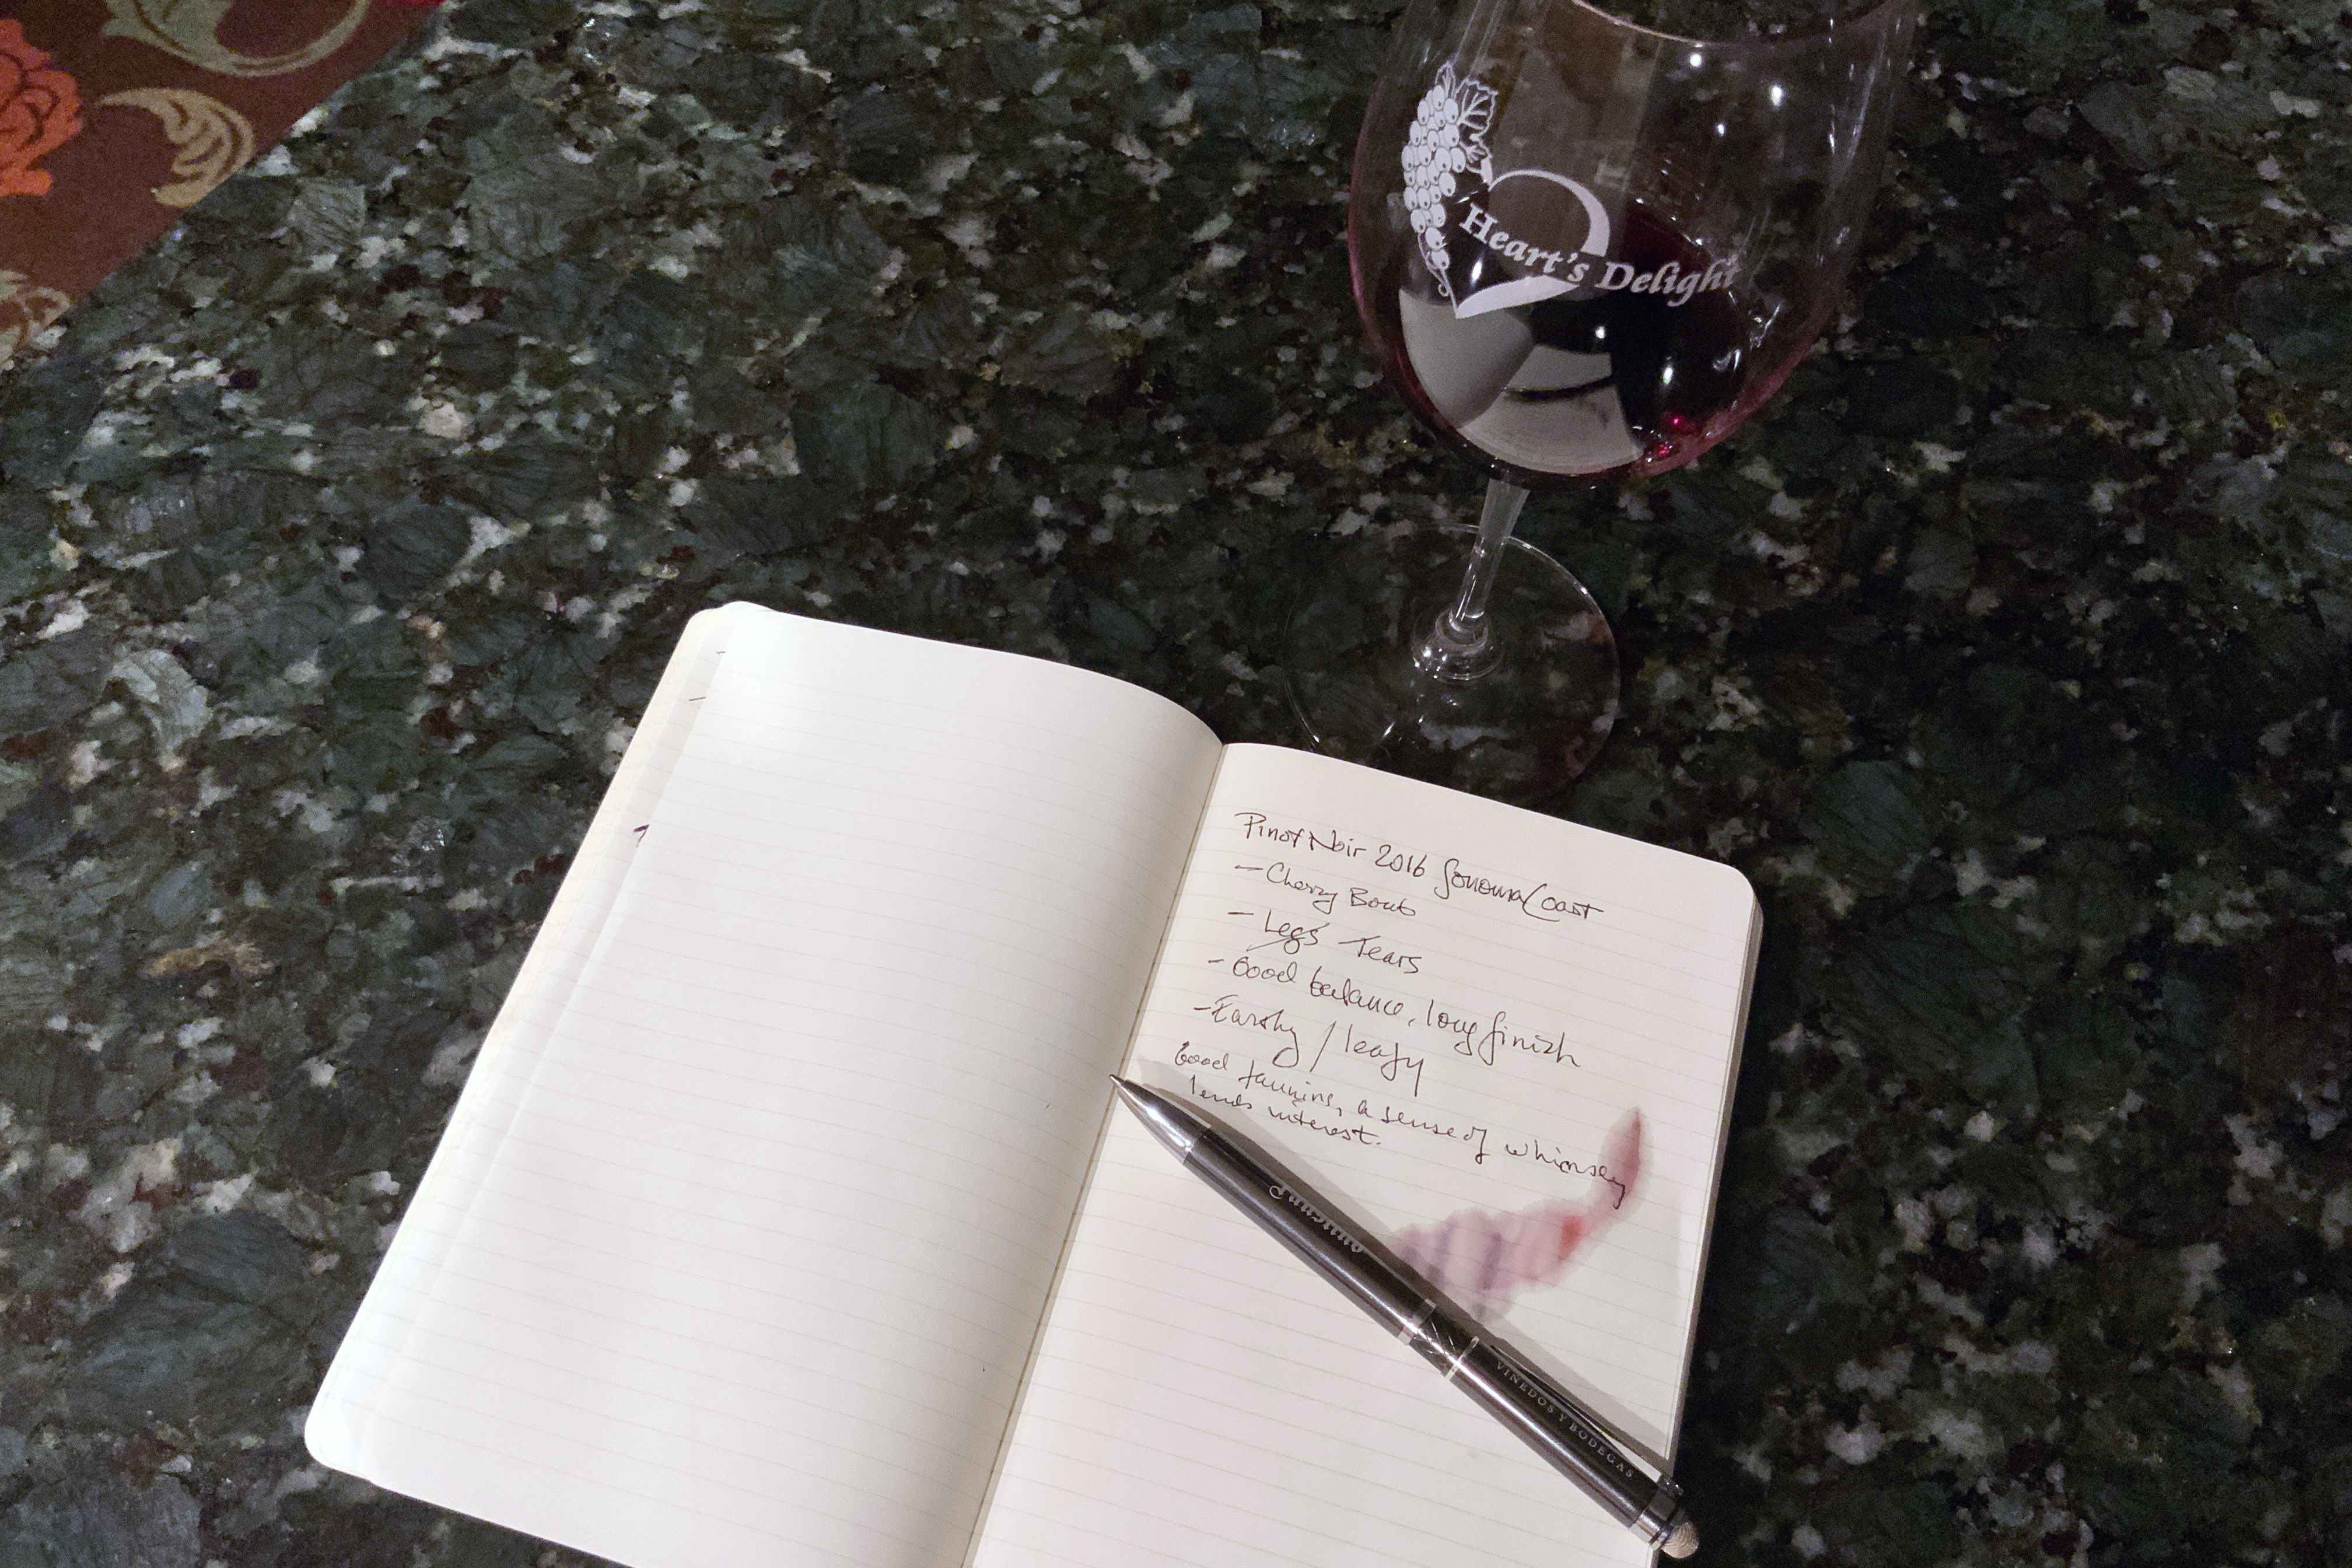 Heart's Delight
Pinot Noir 2016 Sonoma Coast
- Cherry Bomb
- Legs Tears
- Good balance, long finish
- Earthy / leafy
Good tannins, a sense of whimsey
lends interest.
Faustino
VINEDOS Y BODEGAS